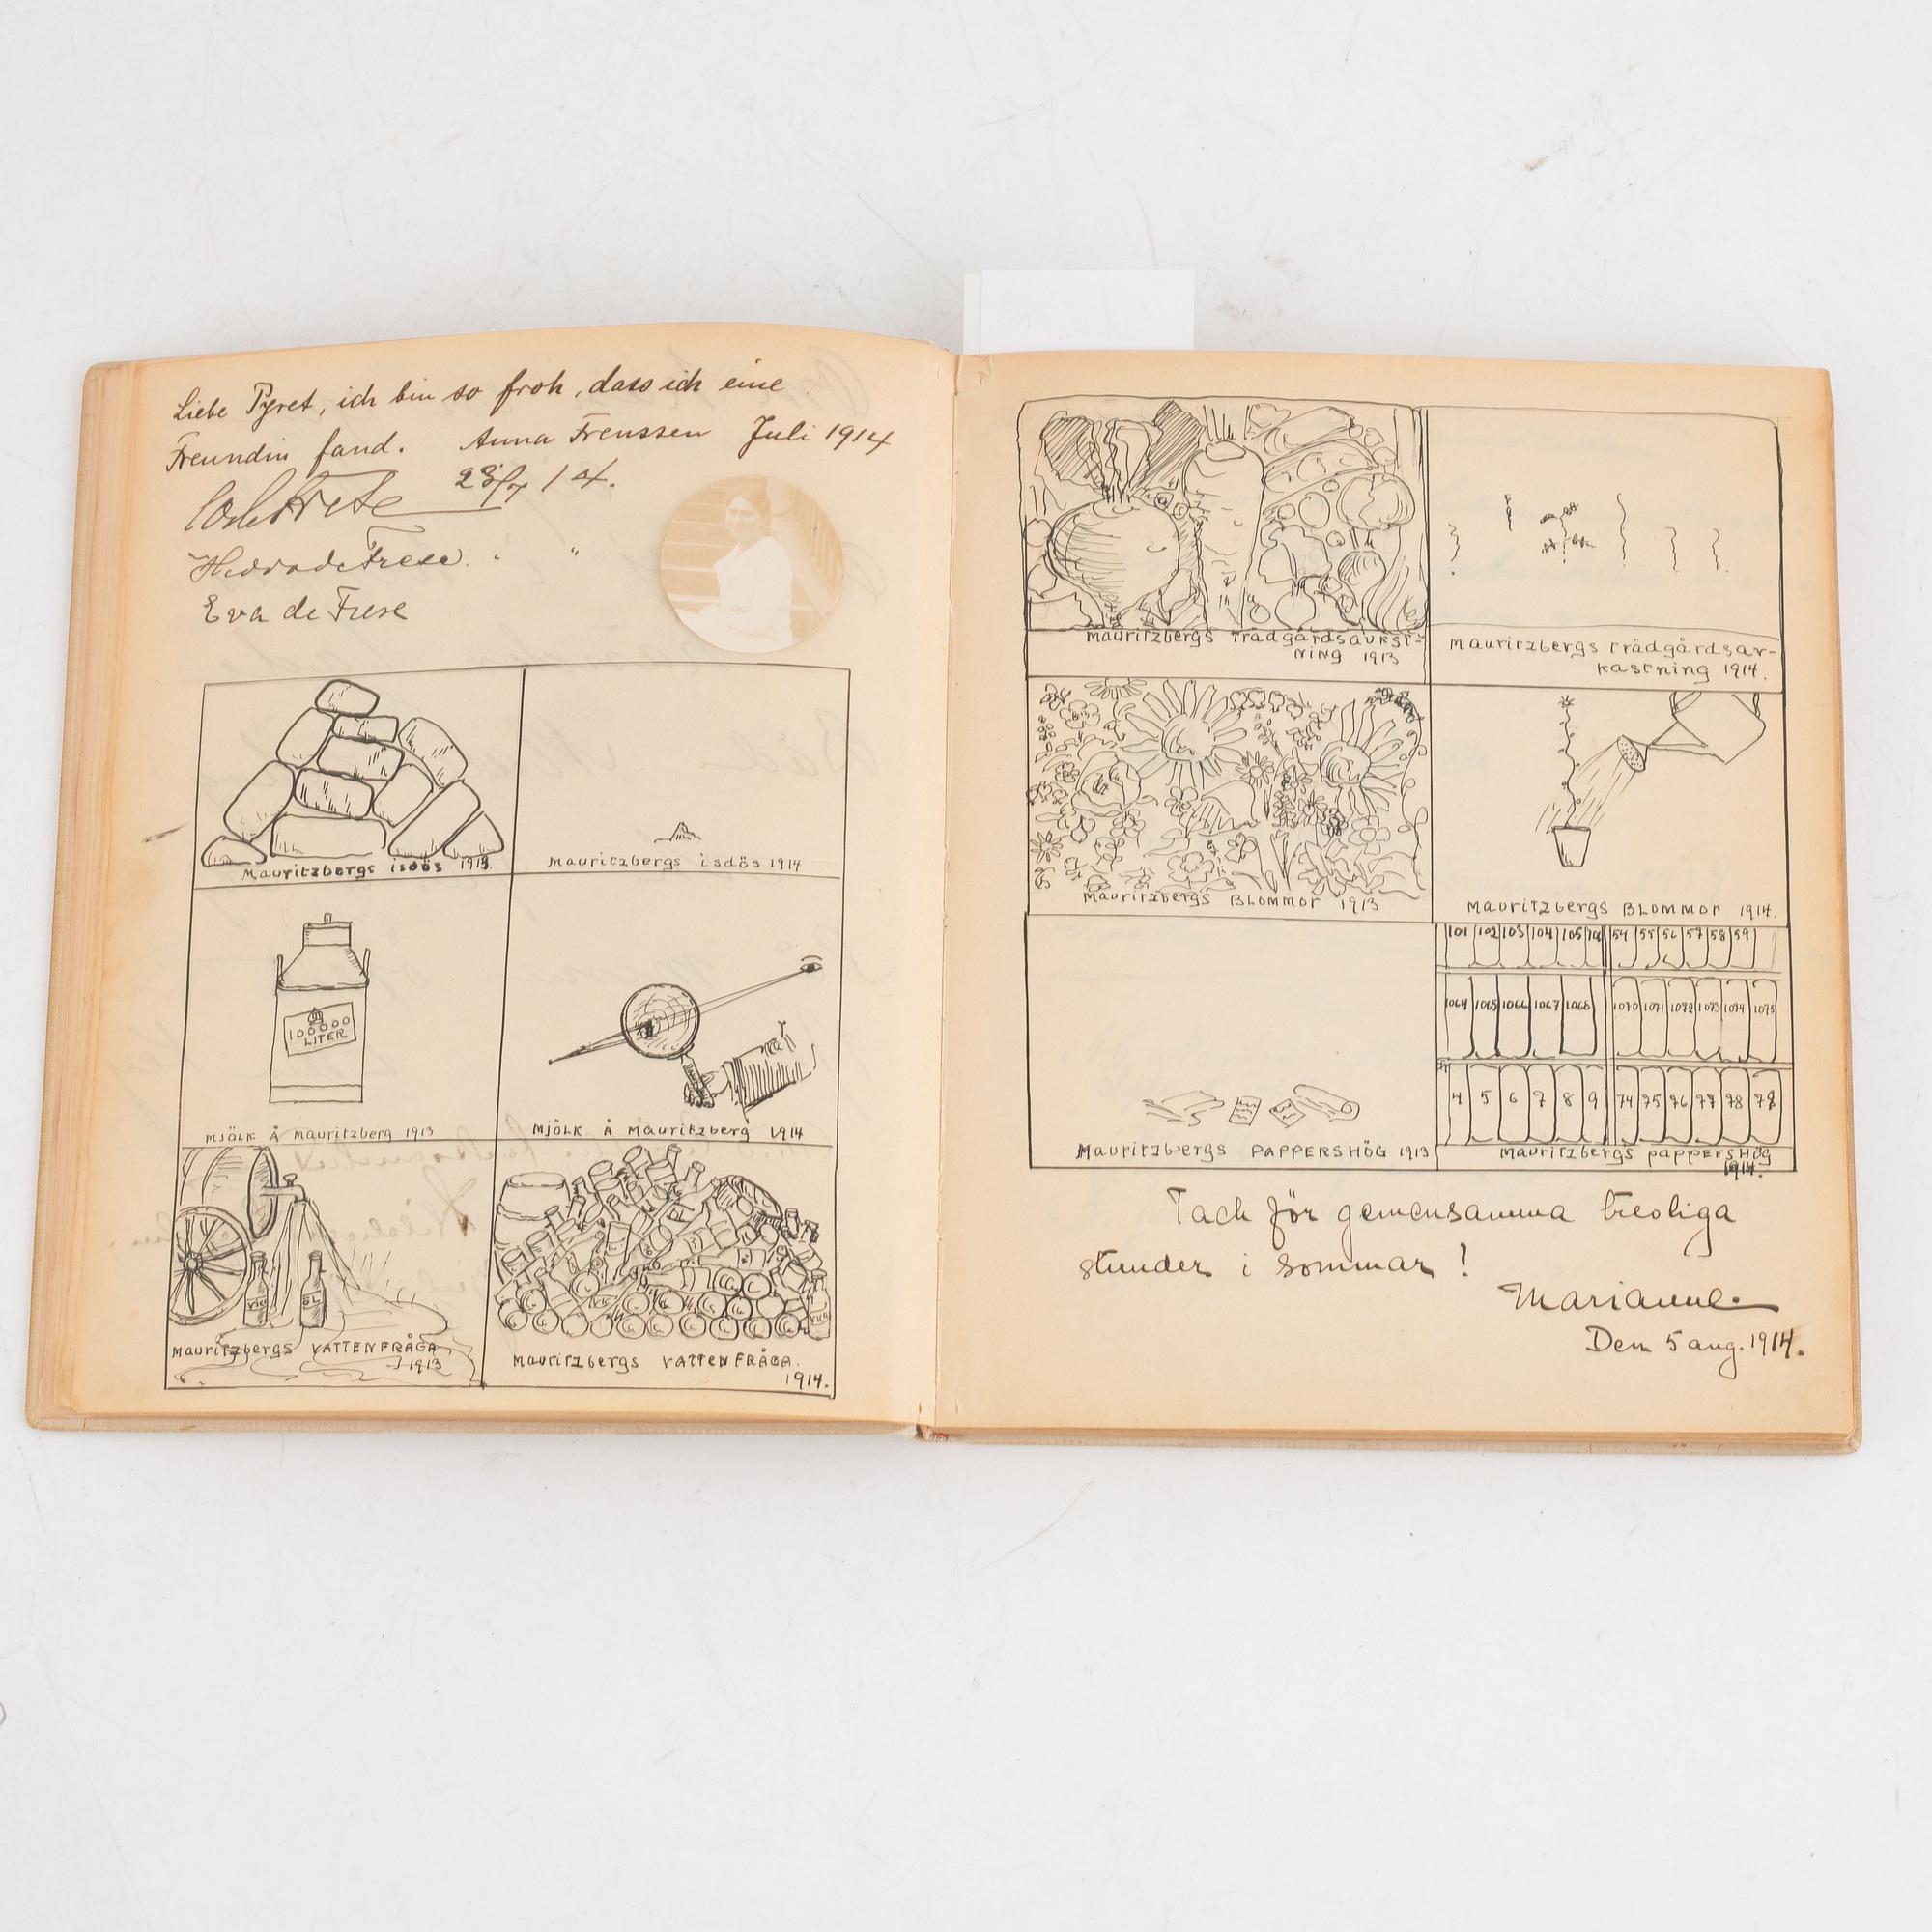 Liebe Pyret, ich bin so froh, dass ich eine
Freundin fand. Anna Frenssen Juli 1914
28/7 14.
" "
Eva de Frese
Mauritzbergs isdös 1913.
Mauritzbergs isdös 1914
100000
LITER
MJÖLK Å Mauritzberg 1913
MJÖLK Å Mauritzberg 1914
VICHY
ÖL
Mauritzbergs VATTENFRÅGA
1913
Mauritzbergs VATTENFRÅGA.
1914.
Mauritzbergs Trädgårdsavkst-
ning 1913
Mauritzbergs trädgårdsav-
kastning 1914.
Mauritzbergs BLOMMOR 1913
Mauritzbergs BLOMMOR 1914.
Mauritzbergs PAPPERSHÖG 1913
101 102 103 104 105 54 55 56 57 58 59
1064 1065 1066 1067 1068 1070 1071 1072 1073 1074 1075
4 5 6 7 8 9 74 75 76 77 78 79
Mauritzbergs pappershög
1914.
Tack för gemensamma treoliga
stunder i sommar!
Marianne.
Den 5 aug. 1914.